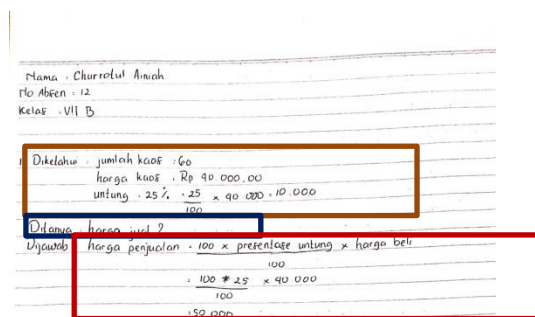 Nama : Churrotul Ainiah
No Absen : 12
Kelas : VII B
1 Diketahui : jumlah kaos : 60
harga kaos : Rp 40.000.00
untung : 25% : 25/100 x 40 000 : 10.000
Ditanya : harga jual ?
Dijawab : harga penjualan : 100 x presentase untung x harga beli
100
: 100 + 25 x 40 000
100
: 50 000